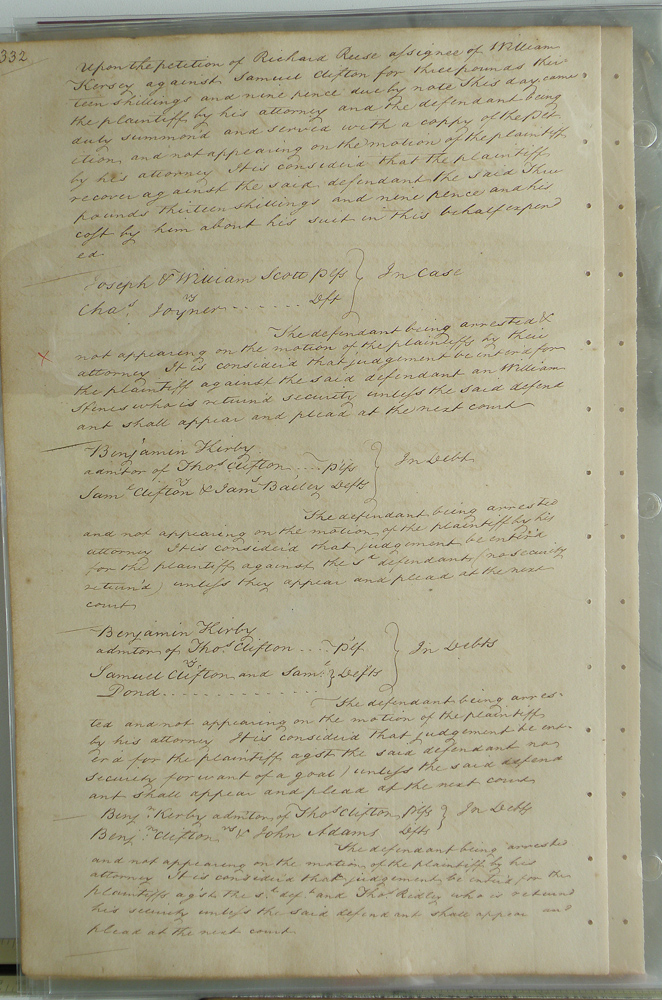 332
Upon the petition of Richard Reese assignee of William
Kersey against Samuel Clifton for three pounds thir
teen shillings and nine pence due by note This day came
the plaintiff by his attorney and the defendant being
duly summon'd and served with a coppy of the Pet
ition and not appearing on the motion of the plaintiff
by his attorney It is consider'd that the plaintiff
recover against the said defendant the said Three
pounds thirteen shillings and nine pence and his
cost by him about his suit in this behalf expend
ed
Joseph & William Scott plfs } In Case
vs
Chas. Joyner - - - - - - Deft
The defendant being arrested &
not appearing on the motion of the plaintiffs by their
attorney It is consider'd that judgement be enter'd for
the plaintiff against the said defendant an William
Hines who is return'd security unless the said defend
ant shall appear and plead at the next court
Benjamin Kirby
admtor of Thos. Clifton - - - plfs } In Debt
vs
Saml. Clifton & Jams. Bailey Defts
The defendant being arrested
and not appearing on the motion of the plaintiff by his
attorney It is consider'd that judgement be enter'd
for the plaintiff against the sd. defendants (no security
return'd) unless they appear and plead at the next
court
Benjamin Kirby
admtor of Thos. Clifton - - - Plf } In Debts
vs
Samuel Clifton and Saml. } Defts
Pond - - - - - - - - - -
The defendant being arres-
ted and not appearing on the motion of the plaintiff
by his attorney It is consider'd that judgement be ent-
er'd for the plaintiff agst the said defendant no
security for want of a goal) unless the said defend
ant shall appear and plead at the next court
Benjn. Kirby admtor of Thos. Clifton Plfs } In Debts
vs
Benjn. Clifton & John Adams Defts
The defendant being arrested
and not appearing on the motion of the plaintiff by his
attorney It is consider'd that judgement be enter'd for the
plaintiffs agst the sd. deft. and Thos. Ridley who is return'd
his security unless the said defendant shall appear and
plead at the next court.